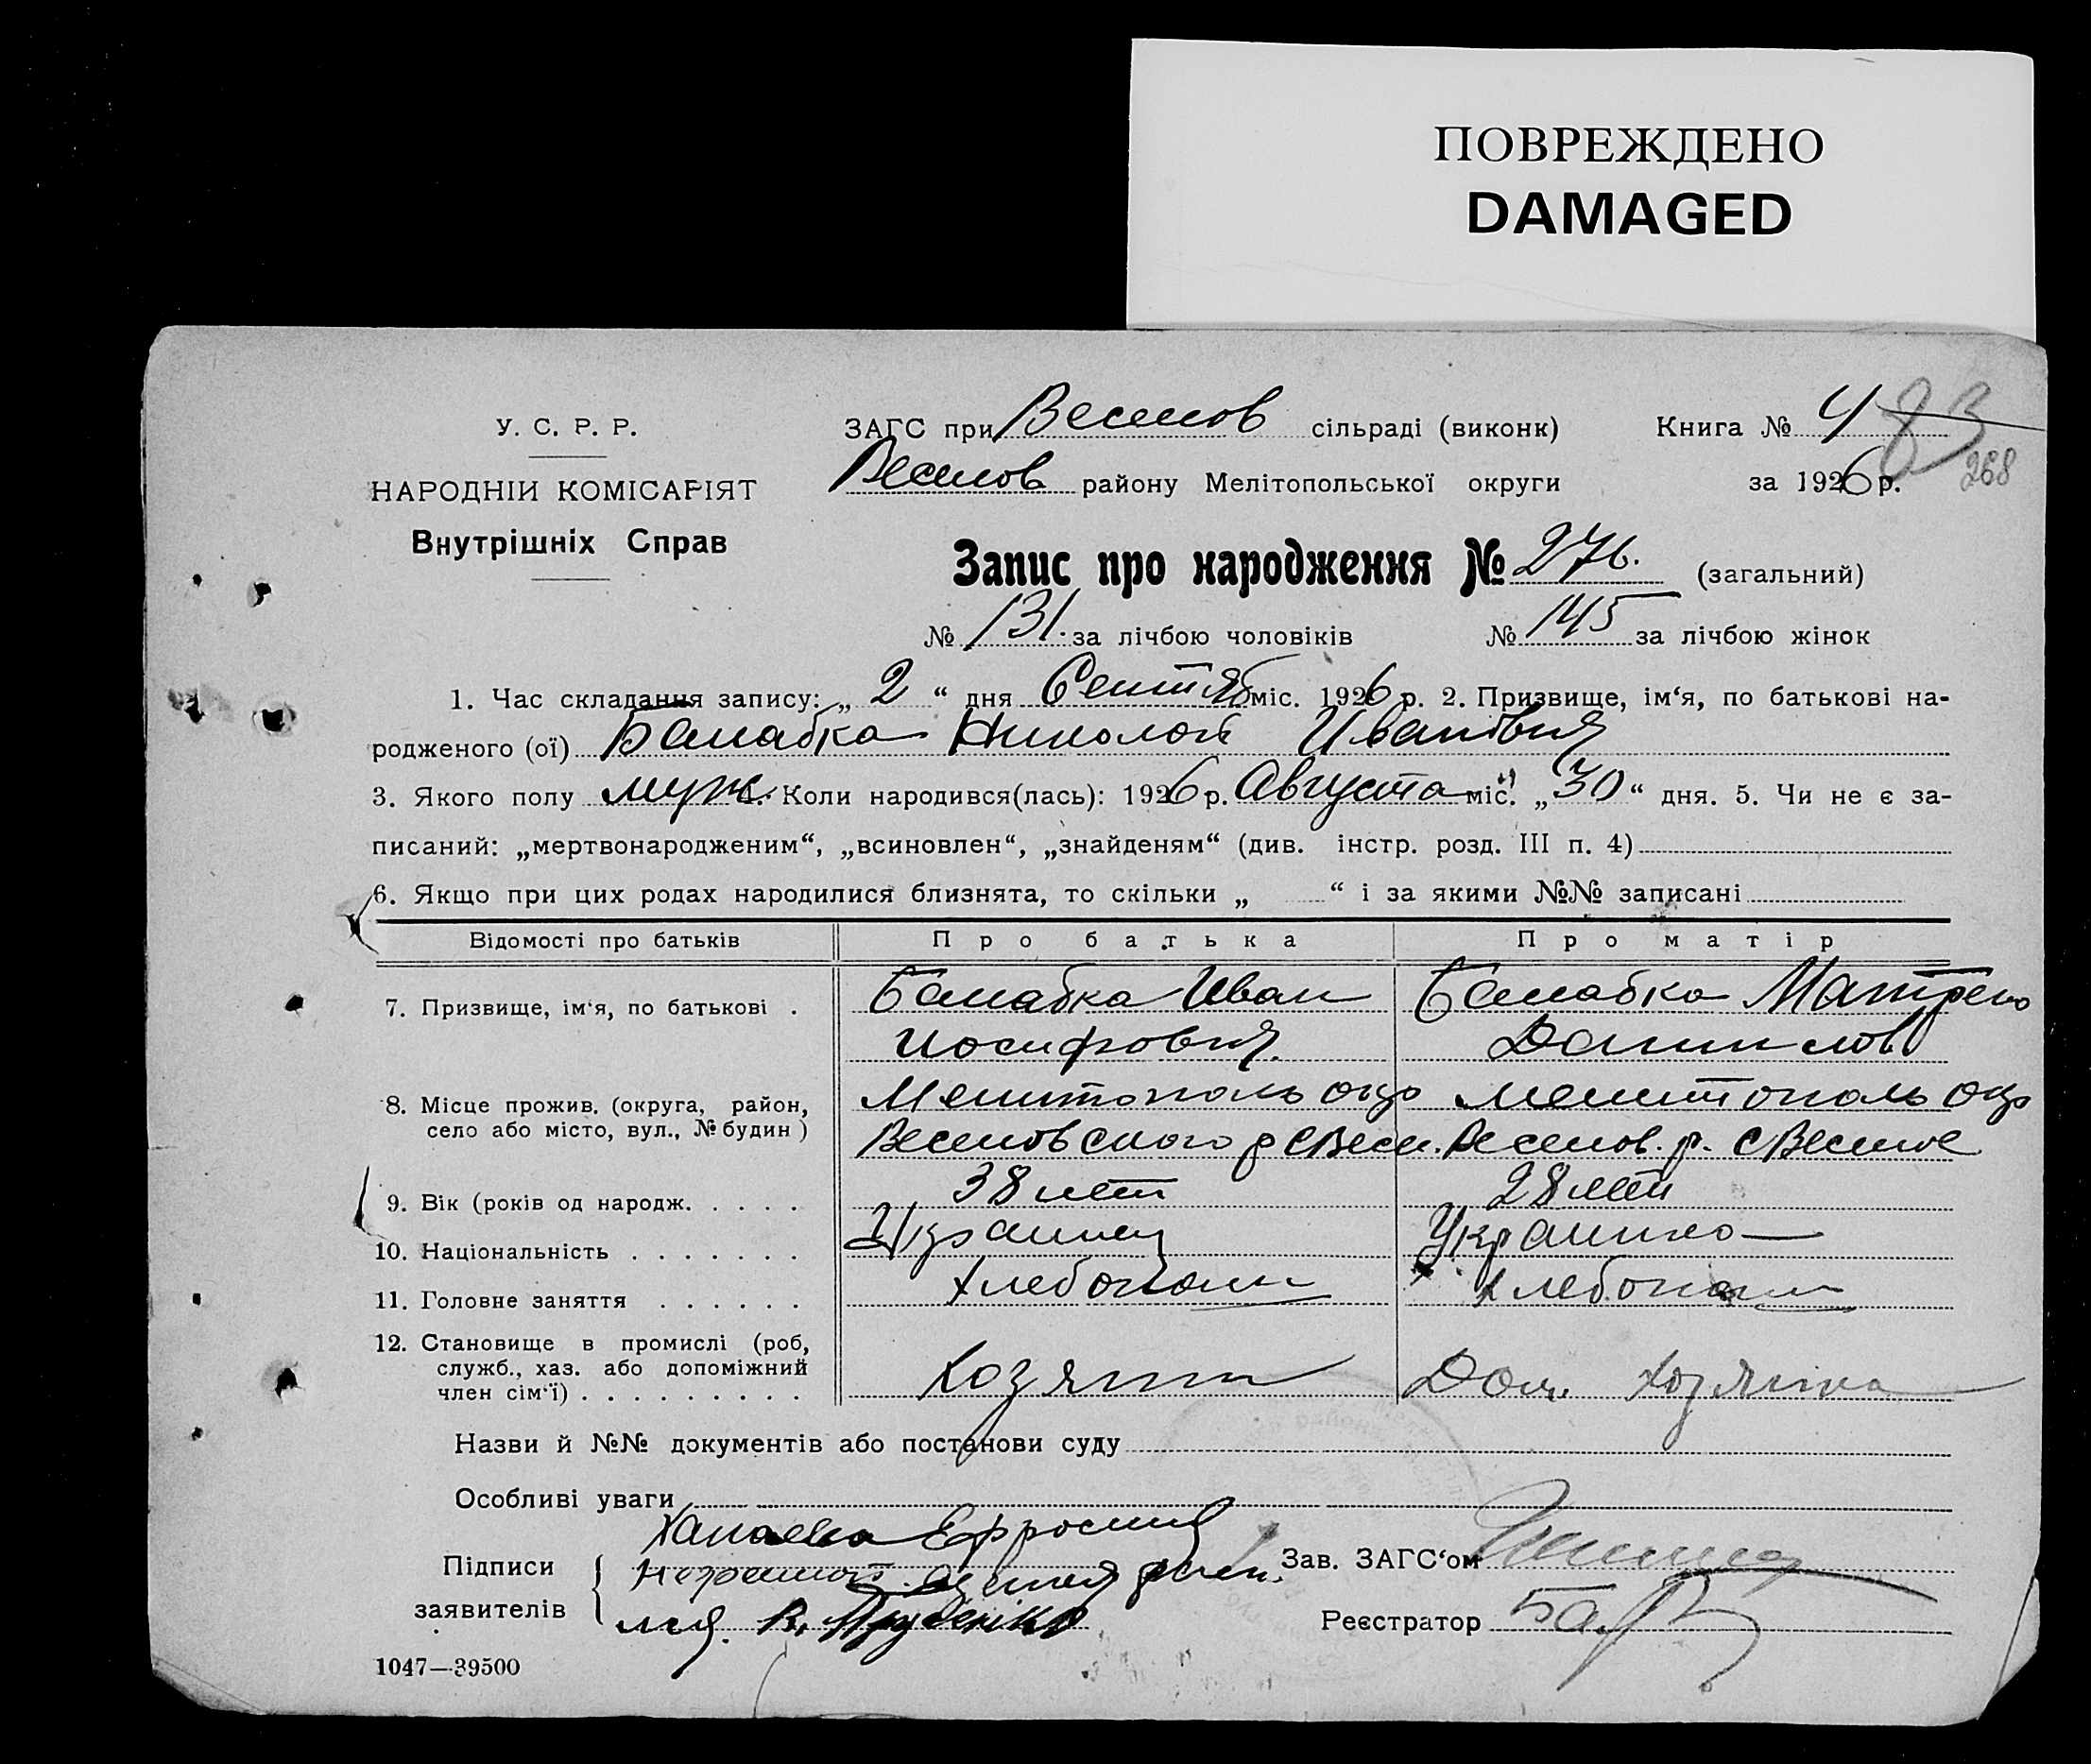 ПОВРЕЖДЕНО
DAMAGED
У. С. Р. Р.
НАРОДНІЙ КОМІСАРІЯТ
Внутрішніх Справ
ЗАГС при Веселов сільраді (виконк)
Веселов району Мелітопольської округи
Книга № 4 83
за 1926 р. 268
Запис про народження № 276. (загальний)
№ 131. за лічбою чоловіків № 145 за лічбою жінок
1. Час складання запису: „ 2 “ дня Сентяб міс. 1926 р. 2. Призвище, ім‘я, по батькові на-
родженого (ої) Балабка Николай Иванович
3. Якого полу муж. 4. Коли народився(лась): 1926 р. Августа міс. „ 30 “ дня. 5. Чи не є за-
писаний: „мертвонародженим“, „всиновлен“, „знайденям“ (див. інстр. розд. III п. 4)
6. Якщо при цих родах народилися близнята, то скільки „ “ і за якими №№ записані
Відомості про батьків Про батька Про матір
7. Призвище, ім‘я, по батькові . Балабка Иван Балабка Матрена
Иосифович. Данилов
8. Місце прожив. (округа, район, Мелитополь окр Мелитополь окр
село або місто, вул., № будин) Веселовского р с Весел. Веселов. р. с Веселое
9. Вік (років од народж. . . . . 38 лет 28 лет
10. Національність . . . . . . . Украинец Украинка
11. Головне заняття . . . . . . Хлебопаш Хлебопаш
12. Становище в промислі (роб,
служб., хаз. або допоміжний
член сім‘ї) . . . . . . . . . Хозяин Дом. Хозяйка
Назви й №№ документів або постанови суду
Особливі уваги
Ефросиния
Підписи
заявителів
Неграмот. за нея распи.
Зав. ЗАГС‘ом
Реєстратор
1047—39500